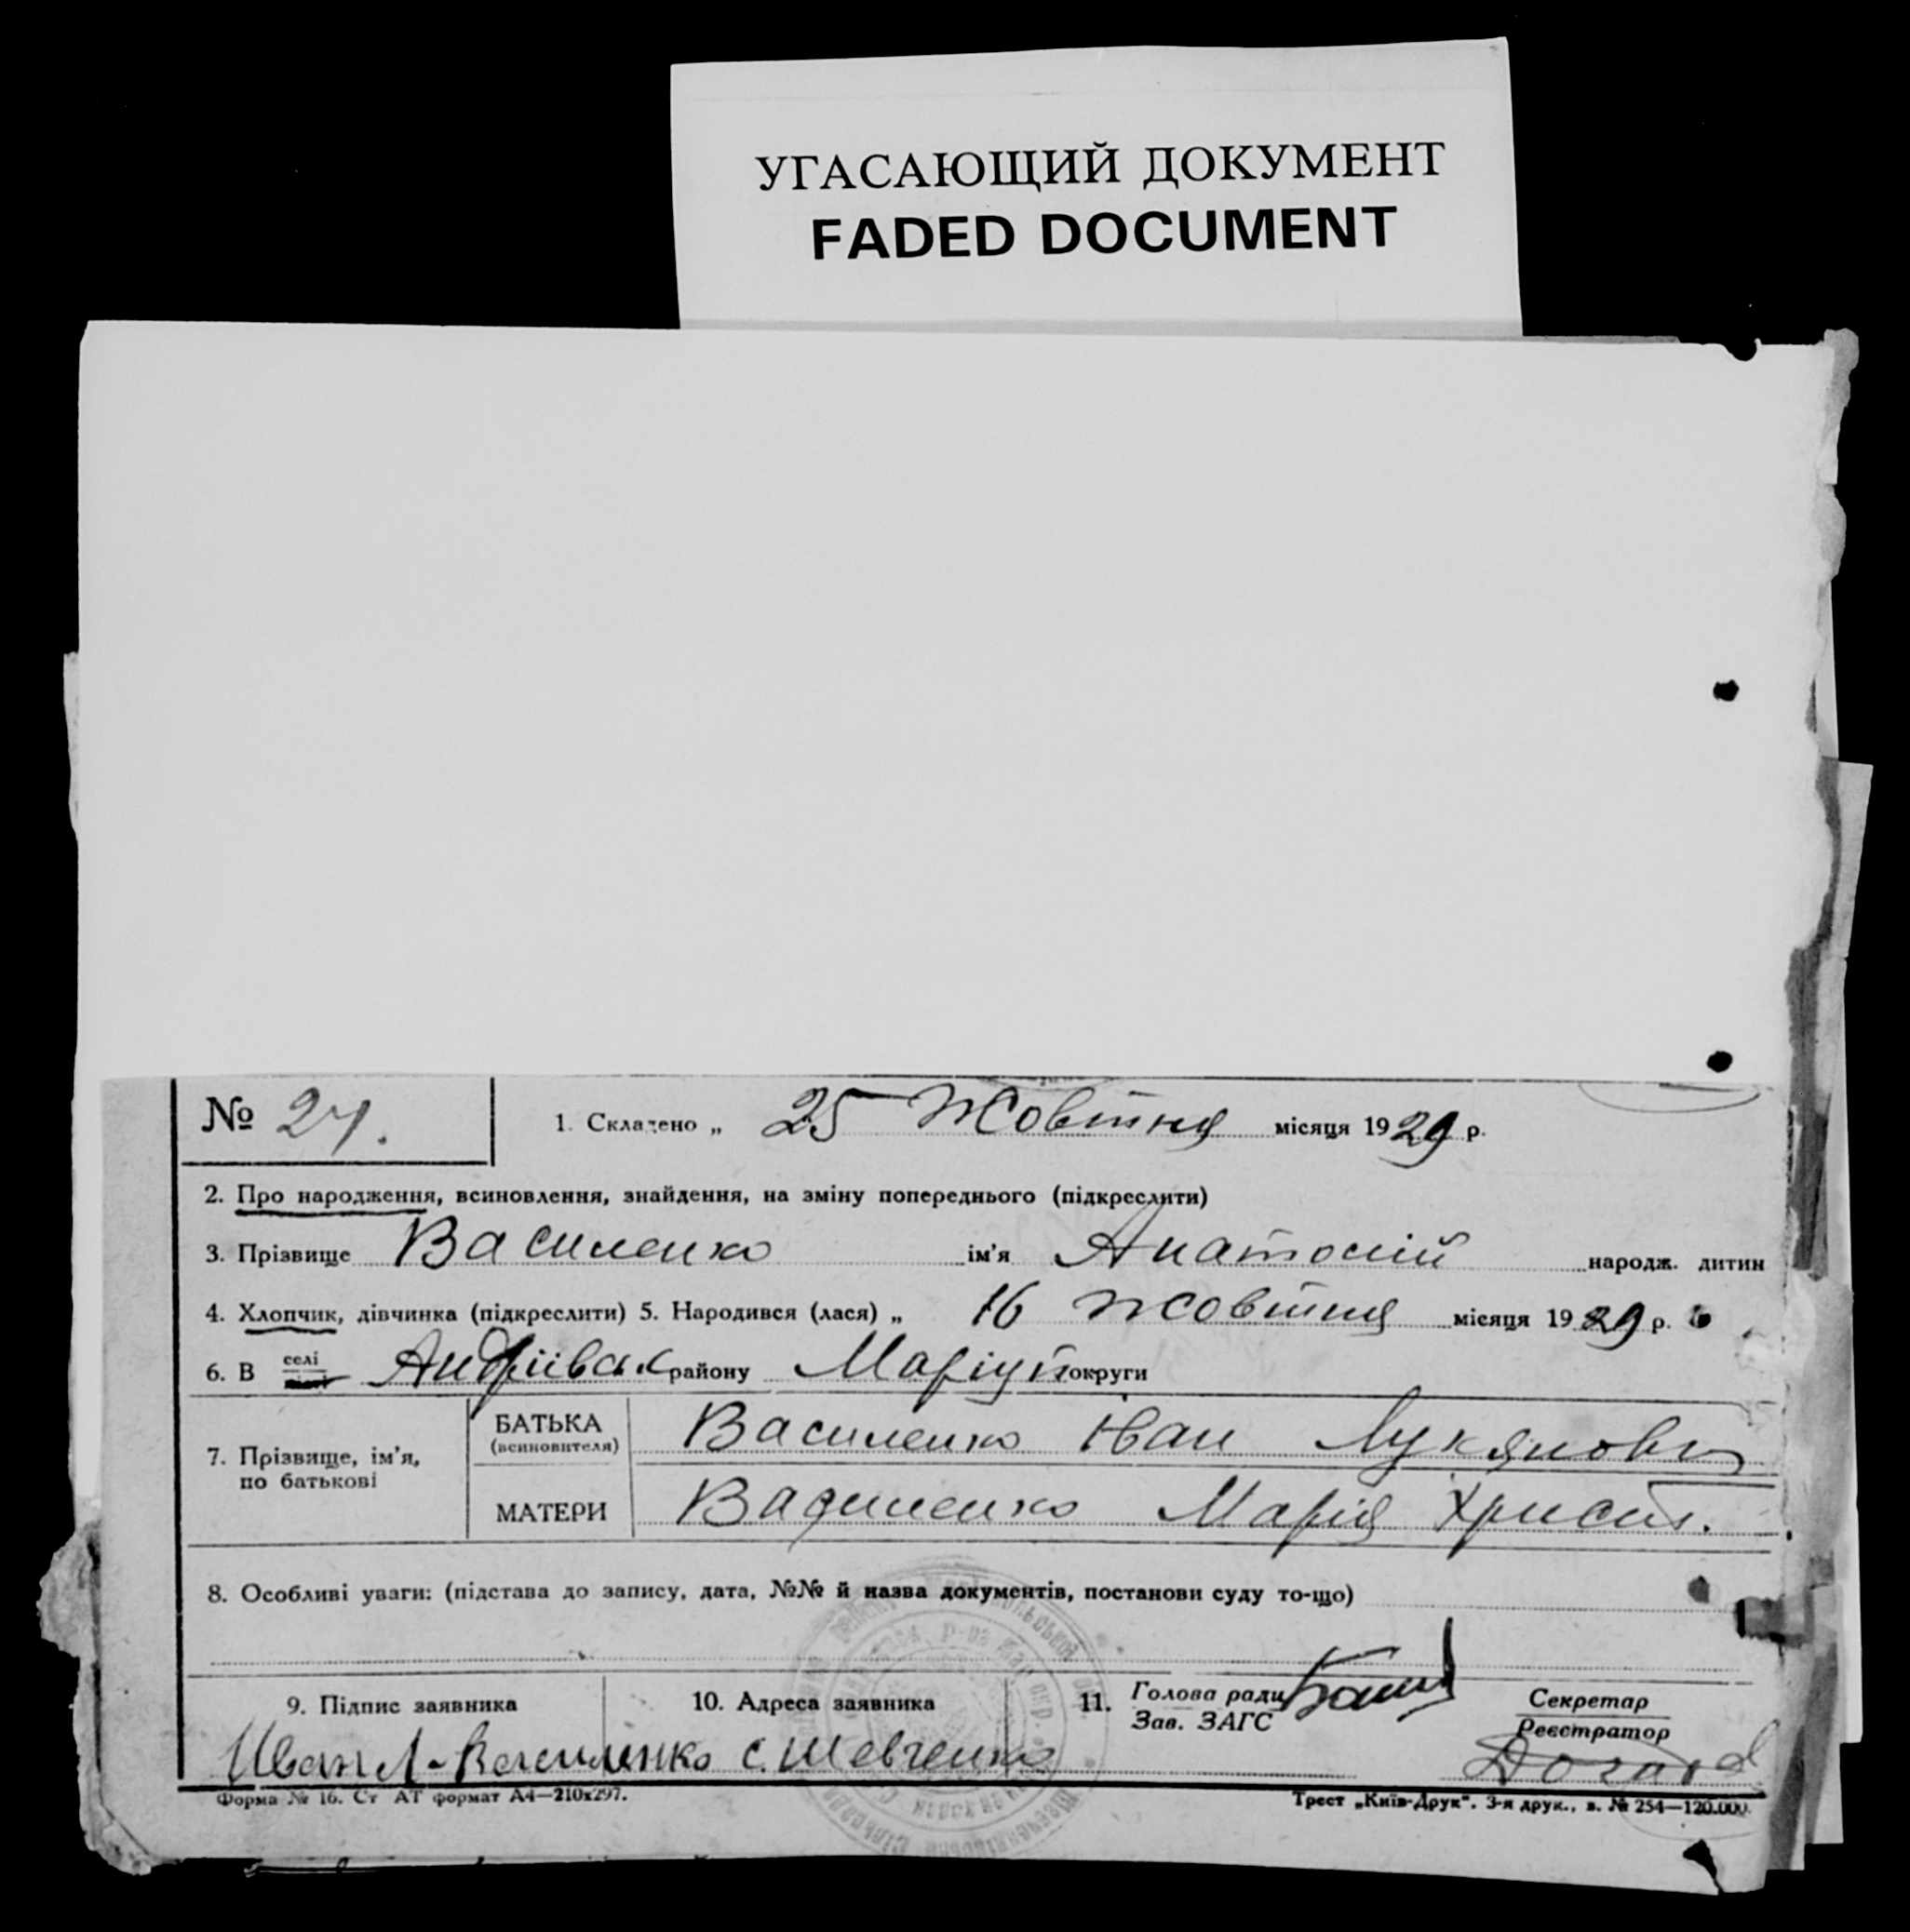 УГАСАЮЩИЙ ДОКУМЕНТ
FADED DOCUMENT
№ 24.
1. Складено „ 25 Жовтня місяця 1929 р.
2. Про народження, всиновлення, знайдення, на зміну попереднього (підкреслити)
3. Прізвище Василенко ім'я Анатолій народж. дитин
4. Хлопчик, дівчинка (підкреслити) 5. Народився (лася) „ 16 жовтня місяця 1929 р.
6. В селі Андріївск району Маріуп округи
7. Прізвище, ім'я, по батькові
БАТЬКА (всиновителя) Василенко Іван Лукянович
МАТЕРИ Василенко Марія Христ.
8. Особливі уваги: (підстава до запису, дата, №№ й назва документів, постанови суду то-що)
9. Підпис заявника
10. Адреса заявника
11. Голова ради
Зав. ЗАГС
Секретар
Реєстратор
Иван Л. Василенко с. Шевченко
Форма № 16. Ст АТ формат А4—210х297.
Трест „Київ-Друк". 3-я друк., з. № 254—120.000.